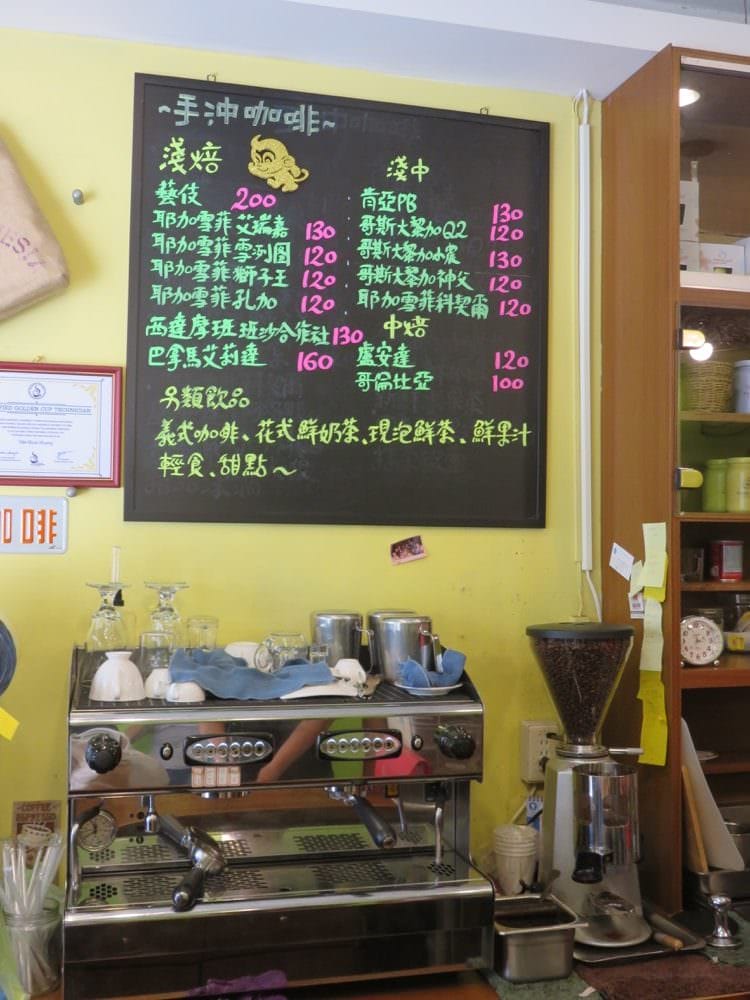 ~手沖咖啡~
淺焙
藝伎 200
耶加雪菲艾瑞嘉 130
耶加雪菲雪冽圖 120
耶加雪菲獅子王 120
耶加雪菲孔加 120
西達摩班班沙合作社 130
巴拿馬艾莉達 160
淺中
肯亞PB 130
哥斯大黎加Q2 120
哥斯大黎加小震 130
哥斯大黎加神父 120
耶加雪菲科契爾 120
中焙
盧安達 120
哥倫比亞 100
另類飲品
義式咖啡、花式鮮奶茶、現泡鮮茶、鮮果汁
輕食、甜點～
GOLDEN CUP TECHNICIAN
咖啡
COFFEE
ESPRESSO